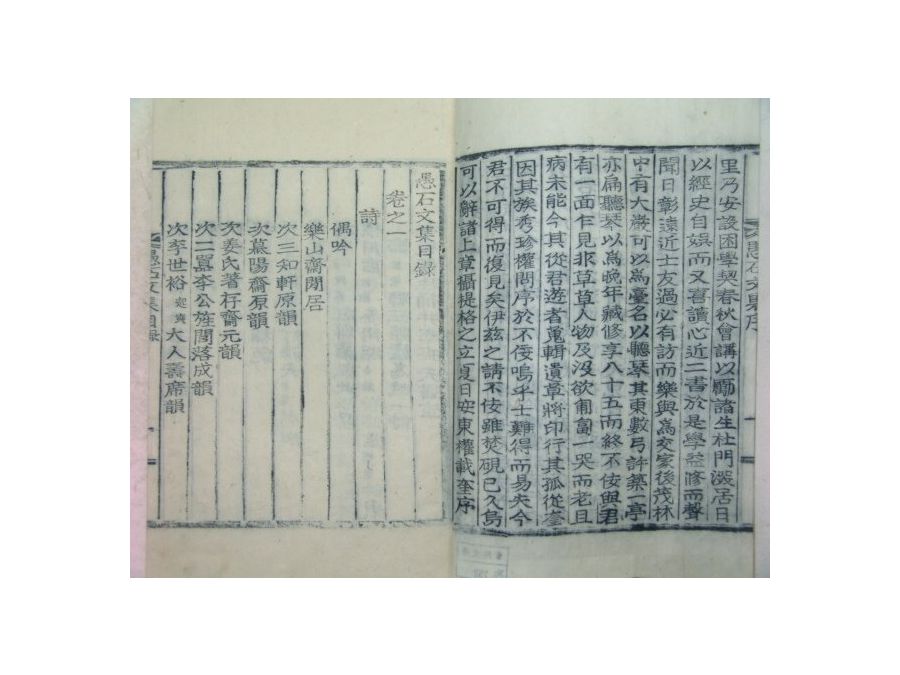 里乃安設困學契春秋會講以勵諸生杜門深居日
以經史自娛而又喜讀心近二書於是學益修而聲
聞日彰遠近士友過必有訪而樂與為交家後茂林
中有大巖可以為臺名以聽琴其東數弓許築一亭
亦扁聽琴以為晚年藏修享八十五而終不侫與君
有一面乍見非草草人物及沒欲匍匐一哭而老且
病未能今其從君遊者蒐輯遺章將印行其孤從奎
因其族秀珍權問序於不侫嗚乎士難得而易失今
君不可得而復見矣伊茲之請不侫雖焚硯已久烏
可以辭諸上章攝提格之立夏日安東權載奎序
愚石文集序
愚石文集目錄
卷之一
詩
偶吟
樂山齋閒居
次三知軒原韻
次慕陽齋原韻
次姜氏著存齋元韻
次二嵒李公旌閭落成韻
次李世裕大人壽席韻
愚石文集目錄